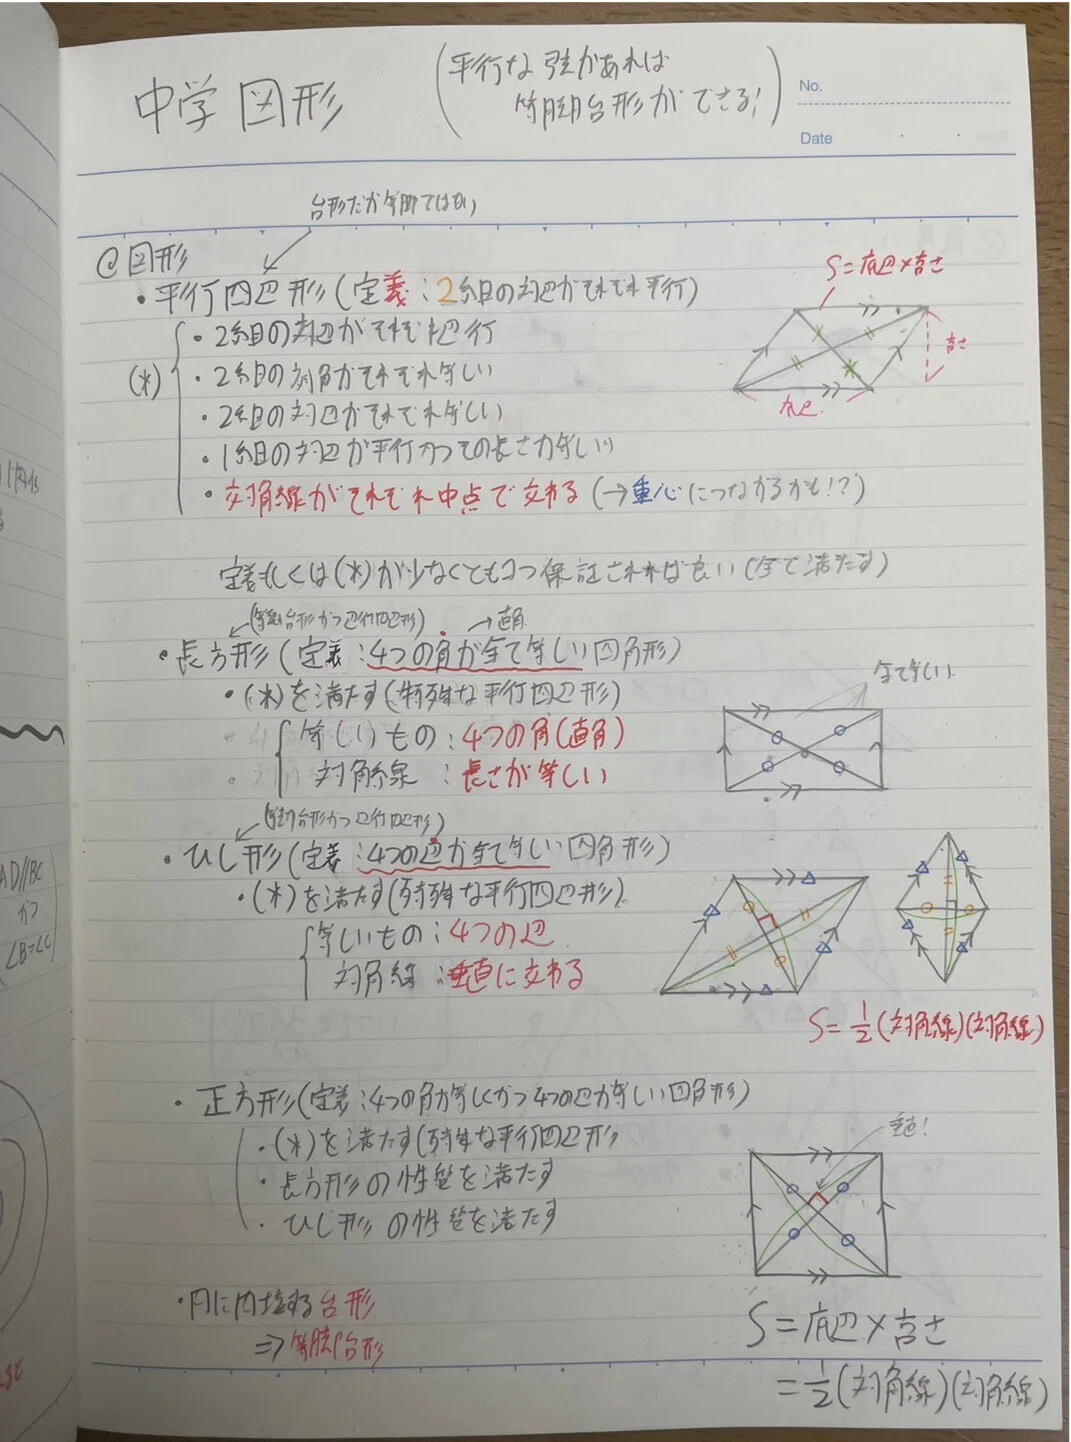 中学図形
(平行な弦があれば
等脚台形ができる!)
No.
Date
台形だが等脚ではない
@図形
・平行四辺形(定義:2組の対辺がそれぞれ平行)
S=底辺×高さ
・2組の対辺がそれぞれ平行
高さ
(*)
・2組の対角がそれぞれ等しい
底辺
・2組の対辺がそれぞれ等しい
・1組の対辺が平行かつその長さが等しい
・対角線がそれぞれ中点で交わる(→重心につながるかも!?)
定義もしくは(*)が少なくとも1つ保証されれば良い(全て満たす)
(等脚台形かつ平行四辺形)
→直角
・長方形(定義:4つの角が全て等しい四角形)
全て等しい
・(*)を満たす(特殊な平行四辺形)
等しいもの:4つの角(直角)
対角線:長さが等しい
・ひし形(定義:4つの辺が全て等しい四角形)
・(*)を満たす(特殊な平行四辺形)
等しいもの:4つの辺
対角線:垂直に交わる
S=1/2(対角線)(対角線)
・正方形(定義:4つの角が等しくかつ4つの辺が等しい四角形)
・(*)を満たす(特殊な平行四辺形
垂直!
・長方形の性質を満たす
・ひし形の性質を満たす
・円に内接する台形
⇒等脚台形
S=底辺×高さ
=1/2(対角線)(対角線)
AD//BC
かつ
∠B=∠C